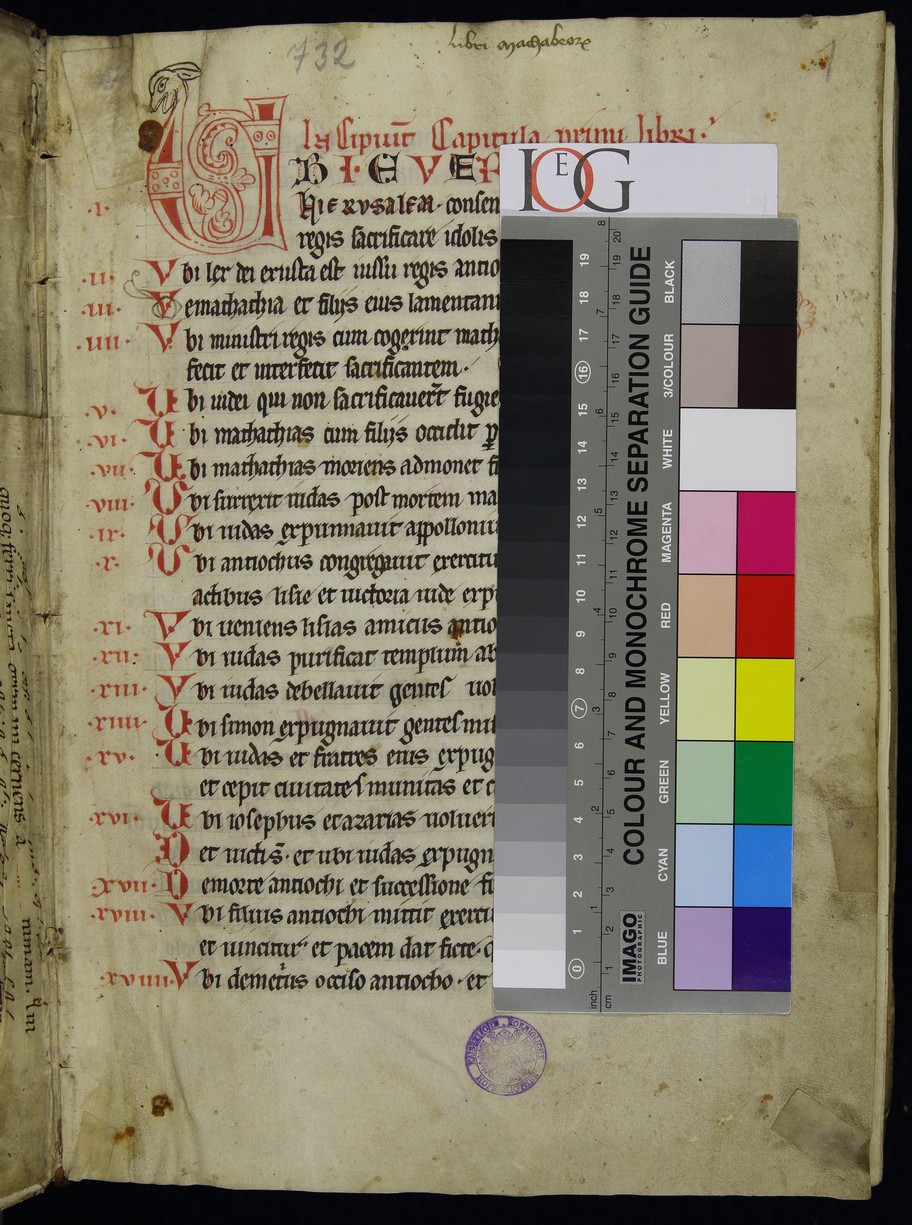 libri Machabeorꝝ
732
1
Incipiūt Capitula primi libri
V BI EVER
.i. HIERUSALEM · consen
regis sacrificare idolis
.ii. Vbi lex dei exusta est iussu regis antio
.iii. Ve mathathia et filijs eius lamentant
.iiii. Vbi ministri regis cum cogerint math
fecit et interfecit sacrificantem .
.v. Ubi iudei qui non sacrificauer̄t fugie
.vi. Ubi mathathias cum filijs occidit ꝑ
.vii. Ubi mathathias moriens admonet fi
.viii. Ubi surrexit iudas post mortem ma
.ix. Ubi iudas expunnauit appolloniu
.x. Ubi antiochus congregauit exercitu
actibus lisie et uictoria iude exp
.xi. Vbi ueniens lisias amicus antio
.xii. Vbi iudas purificat templum ab
.xiii. Vbi iudas debellauit gentes uol
.xiiii. Ubi simon expugnauit gentes mi
.xv. Ubi iudas et fratres eius expug
et cepit ciuitates munitas et c
.xvi. Ubi iosephus et azarias uoluer
et uicti s̄· et ubi iudas expugn
.xvii. De morte antiochi et successione fi
.xviii. Vbi filius antiochi mittit exercitu
et uincitur et pacem dat ficte· q
.xviiii. Vbi demetrius occiso antiocho · et
IOEG
COLOUR AND MONOCHROME SEPARATION GUIDE
IMAGO
PHOTOGRAPHIC
BLACK
3/COLOUR
WHITE
MAGENTA
RED
YELLOW
GREEN
CYAN
BLUE
19
18
17
16
15
14
13
12
11
10
9
8
7
6
5
4
3
2
1
0
8
7
6
5
4
3
2
1
inch
20
19
18
17
16
15
14
13
12
11
10
9
8
7
6
5
4
3
2
1
cm